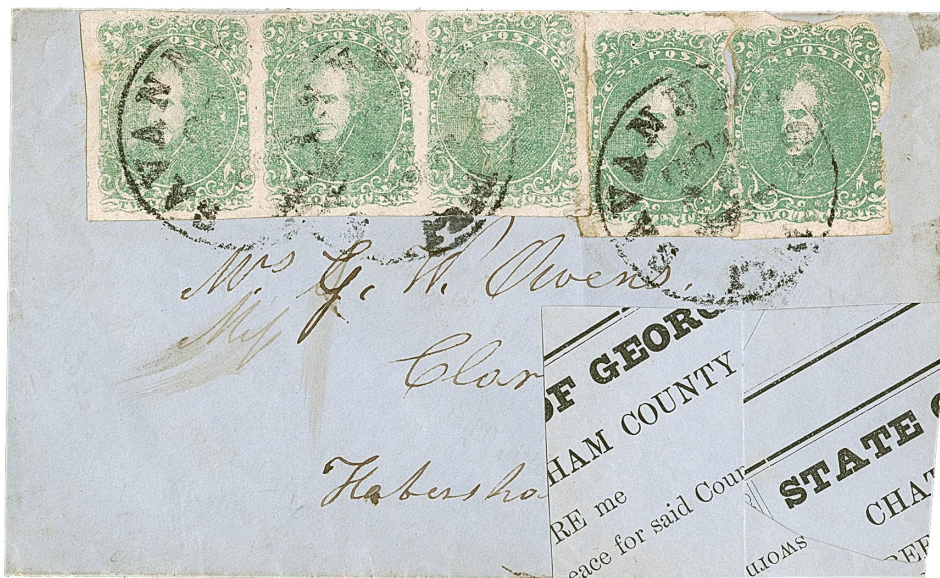 C S A POSTAGE C S A POSTAGE C S A POSTAGE C S A POSTAGE C S A POSTAGE
TWO CENTS
SAVANNAH
SAVANNAH
Mrs G. W. Owens.
Clar
Habersha
OF GEORG
HAM COUNTY
RE me
eace for said Cour
STATE O
CHAT
sworn